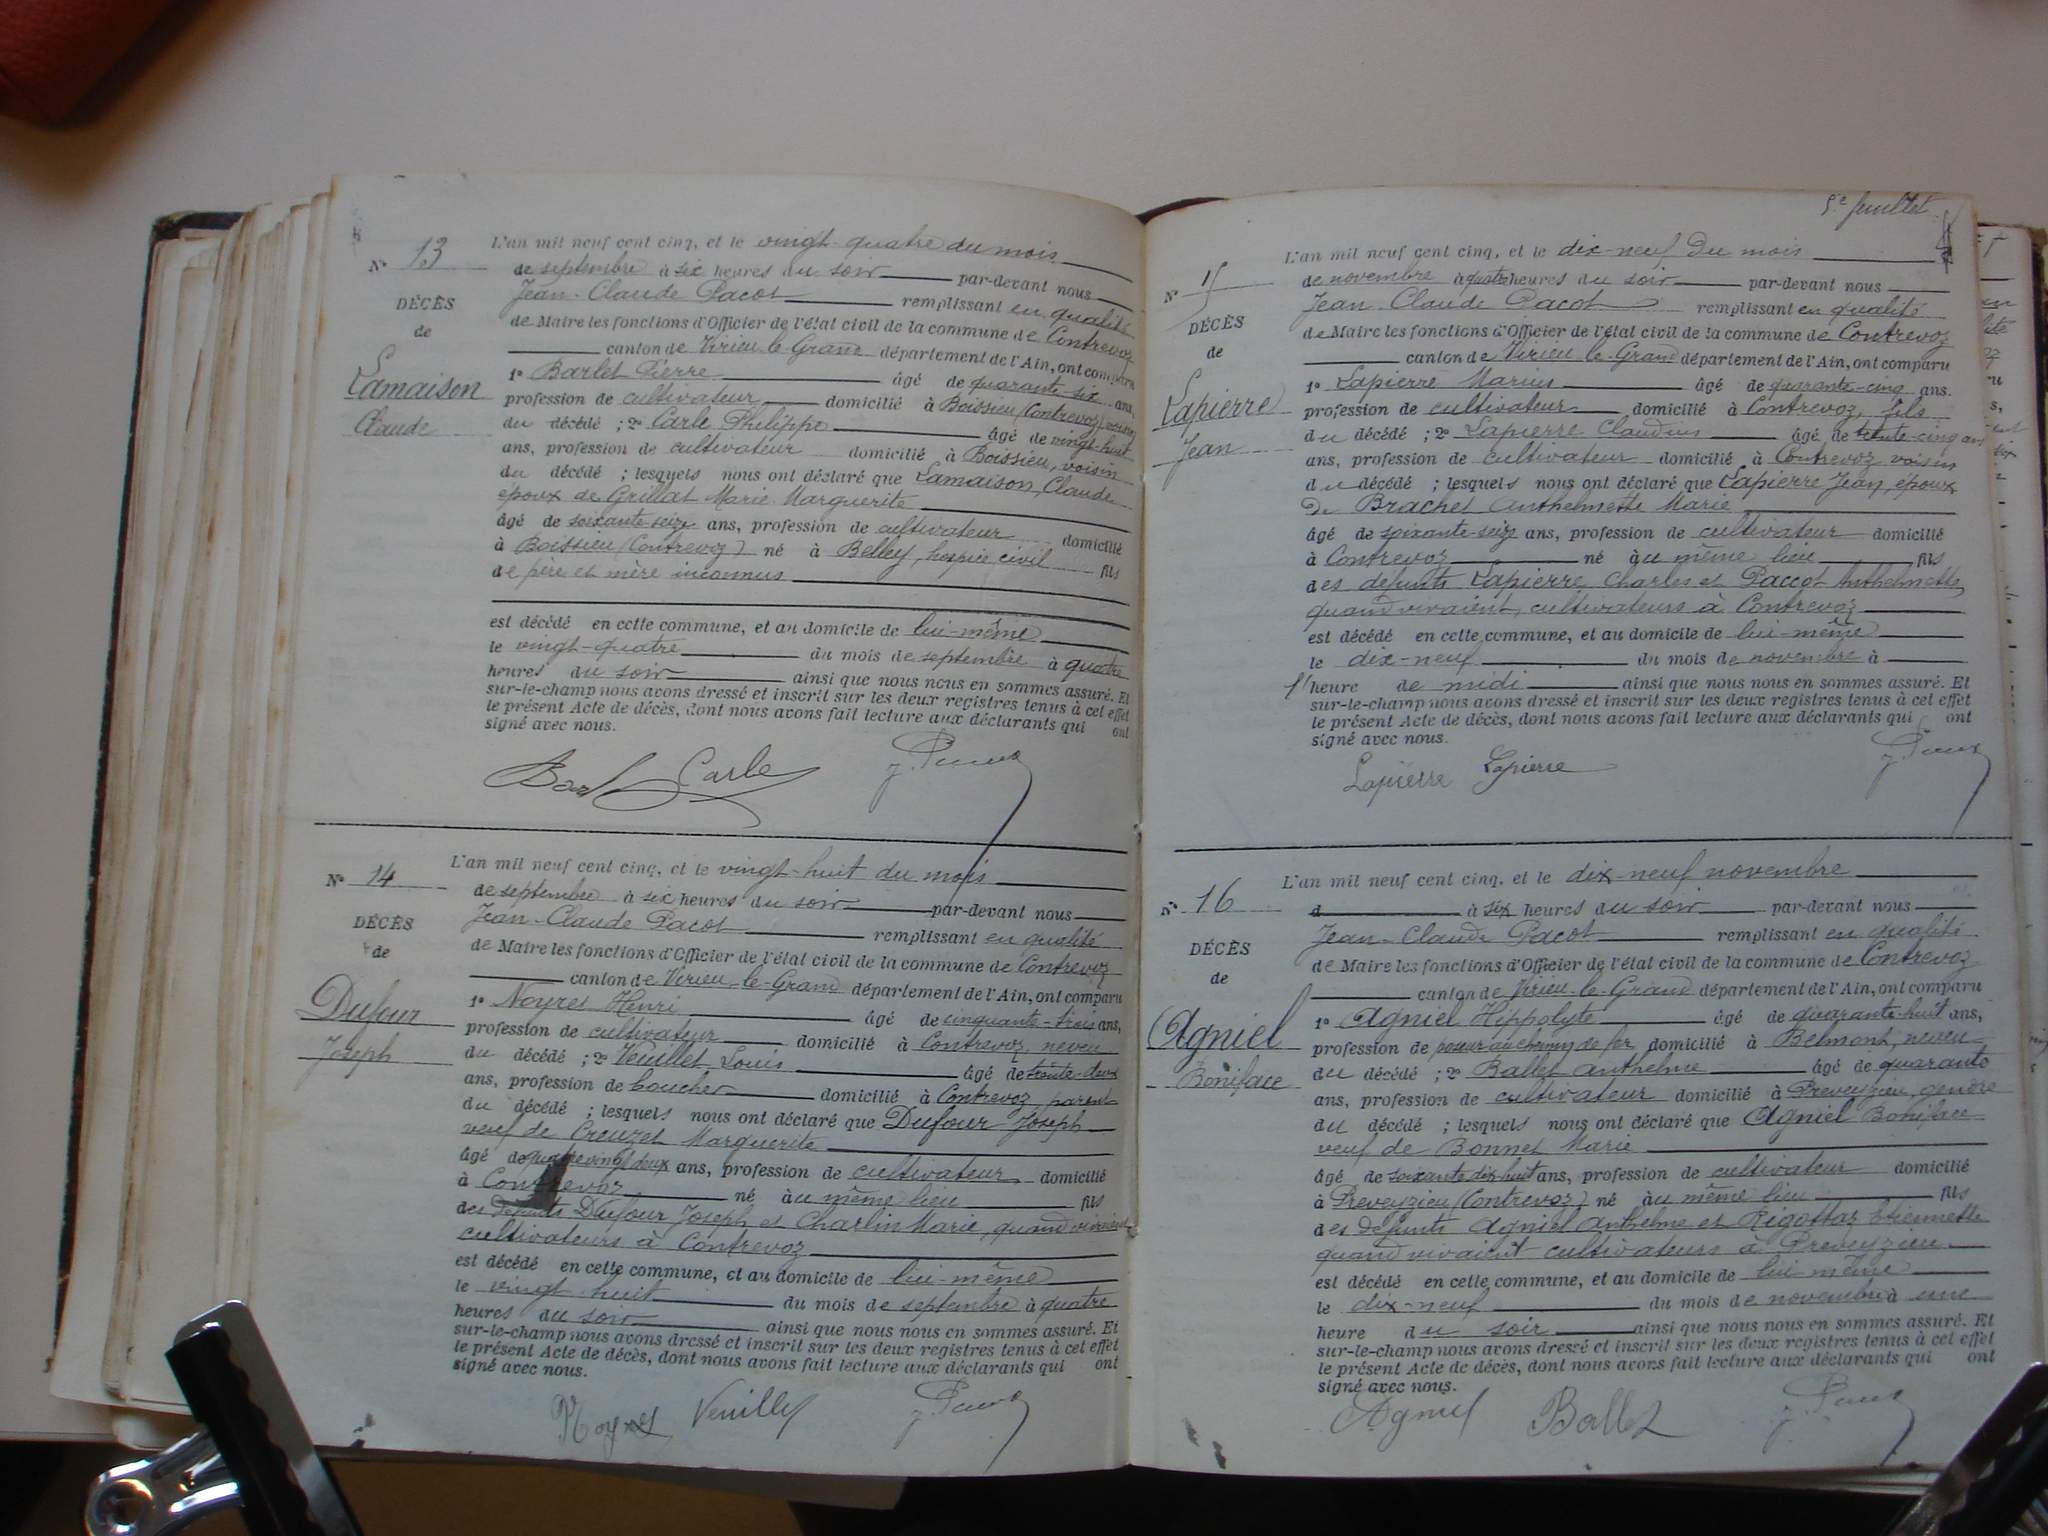 N° 13
DÉCÈS
de
Lamaison
Claude
L'an mil neuf cent cinq, et le vingt-quatre du mois
de septembre à six heures du soir par-devant nous
Jean-Claude Pacot remplissant en qualité
de Maire les fonctions d'Officier de l'état civil de la commune de Contrevoz
canton de Virieu-le-Grand département de l'Ain, ont comparu
1° Barlet Pierre âgé de quarante-six ans,
profession de cultivateur domicilié à Boissieu (Contrevoz) voisin
du décédé ; 2° Carle Philippe âgé de vingt-huit
ans, profession de cultivateur domicilié à Boissieu, voisin
du décédé ; lesquels nous ont déclaré que Lamaison, Claude
époux de Grillat Marie Marguerite
âgé de soixante-seize ans, profession de cultivateur domicilié
à Boissieu (Contrevoz) né à Belley, hospice civil fils
de père et mère inconnus
est décédé en cette commune, et au domicile de lui-même
le vingt-quatre du mois de septembre à quatre
heures du soir ainsi que nous nous en sommes assuré. Et
sur-le-champ nous avons dressé et inscrit sur les deux registres tenus à cet effet
le présent Acte de décès, dont nous avons fait lecture aux déclarants qui ont
signé avec nous.
Carle
N° 14
DÉCÈS
de
Dufour
Joseph
L'an mil neuf cent cinq, et le vingt-huit du mois
de septembre à six heures du soir par-devant nous
Jean-Claude Pacot remplissant en qualité
de Maire les fonctions d'Officier de l'état civil de la commune de Contrevoz
canton de Virieu-le-Grand département de l'Ain, ont comparu
1° Noyret Henri âgé de cinquante-trois ans,
profession de cultivateur domicilié à Contrevoz, neveu
du décédé ; 2° Veuillet Louis âgé de trente-deux
ans, profession de boucher domicilié à Contrevoz, parent
du décédé ; lesquels nous ont déclaré que Dufour Joseph
veuf de Creuzet Marguerite
âgé de quatre vingt deux ans, profession de cultivateur domicilié
à Contrevoz né au même lieu fils
des défunts Dufour Joseph et Charlin Marie, quand vivaient
cultivateurs à Contrevoz
est décédé en cette commune, et au domicile de lui-même
le vingt huit du mois de septembre à quatre
heures du soir ainsi que nous nous en sommes assuré. Et
sur-le-champ nous avons dressé et inscrit sur les deux registres tenus à cet effet
le présent Acte de décès, dont nous avons fait lecture aux déclarants qui ont
signé avec nous.
Noyret
5e feuillet
N° 15
DÉCÈS
de
Lapierre
Jean
L'an mil neuf cent cinq, et le dix-neuf du mois
de novembre à quatre heures du soir par-devant nous
Jean-Claude Pacot remplissant en qualité
de Maire les fonctions d'Officier de l'état civil de la commune de Contrevoz
canton de Virieu-le-Grand département de l'Ain, ont comparu
1° Lapierre Marius âgé de quarante-cinq ans.
profession de cultivateur domicilié à Contrevoz, fils
du décédé ; 2° Lapierre Claudius âgé de trente-cinq ans
ans, profession de cultivateur domicilié à Contrevoz voisin
du décédé ; lesquels nous ont déclaré que Lapierre Jean, époux
de Brachet Anthelmette Marie
âgé de soixante-seize ans, profession de cultivateur domicilié
à Contrevoz né au même lieu fils
des défunts Lapierre Charles et Paccot Anthelmette
quand vivaient, cultivateurs à Contrevoz
est décédé en cette commune, et au domicile de lui-même
le dix-neuf du mois de novembre à
l'heure de midi ainsi que nous nous en sommes assuré. Et
sur-le-champ nous avons dressé et inscrit sur les deux registres tenus à cet effet
le présent Acte de décès, dont nous avons fait lecture aux déclarants qui ont
signé avec nous.
Lapierre Lapierre
N° 16
DÉCÈS
de
Agniel
Boniface
L'an mil neuf cent cinq, et le dix-neuf novembre
d à six heures du soir par-devant nous
Jean-Claude Pacot remplissant en qualité
de Maire les fonctions d'Officier de l'état civil de la commune de Contrevoz
canton de Virieu-le-Grand département de l'Ain, ont comparu
1° Agniel Hippolyte âgé de quarante-huit ans,
profession de poseur au chemin de fer domicilié à Belmont, neveu
du décédé ; 2° Ballet Anthelme âgé de quarante
ans, profession de cultivateur domicilié à Preveyzieu, gendre
du décédé ; lesquels nous ont déclaré que Agniel Boniface
veuf de Bonnet Marie
âgé de soixante dix huit ans, profession de cultivateur domicilié
à Preveyzieu (Contrevoz) né au même lieu fils
des défunts Agniel Anthelme et Rigottaz Etiennette
quand vivaient cultivateurs à Preveyzieu
est décédé en cette commune, et au domicile de lui même
le dix-neuf du mois de novembre à une
heure du soir ainsi que nous nous en sommes assuré. Et
sur-le-champ nous avons dressé et inscrit sur les deux registres tenus à cet effet
le présent Acte de décès, dont nous avons fait lecture aux déclarants qui ont
signé avec nous.
Agniel Ballet